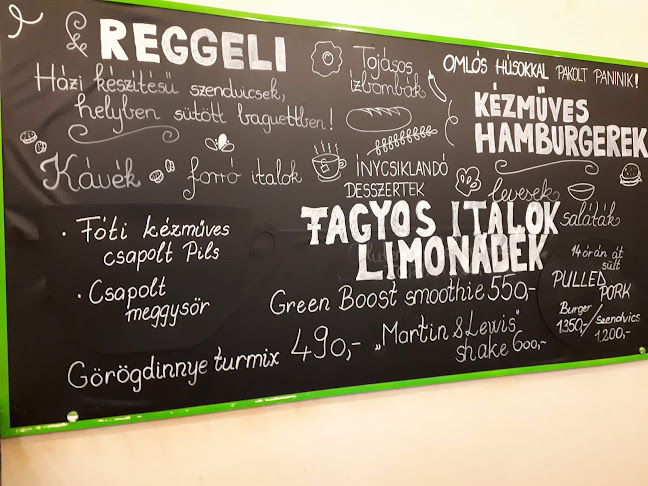 REGGELI
Házi készítésű szendvicsek,
helyben sütött baguettben!
Tojásos
ízbombák
OMLÓS HÚSOKKAL PAKOLT PANINIK!
KÉZMŰVES
HAMBURGEREK
Kávék
forró italok
ÍNYCSIKLANDÓ
DESSZERTEK
levesek
saláták
• Fóti kézműves
csapolt Pils
• Csapolt
meggysör
FAGYOS ITALOK
LIMONÁDÉK
Green Boost smoothie 550,-
Görögdinnye turmix 490,-
„Martin & Lewis"
shake 600,-
14 órán át
sült
PULLED
PORK
Burger
1350,-/
Szendvics
1.200,-